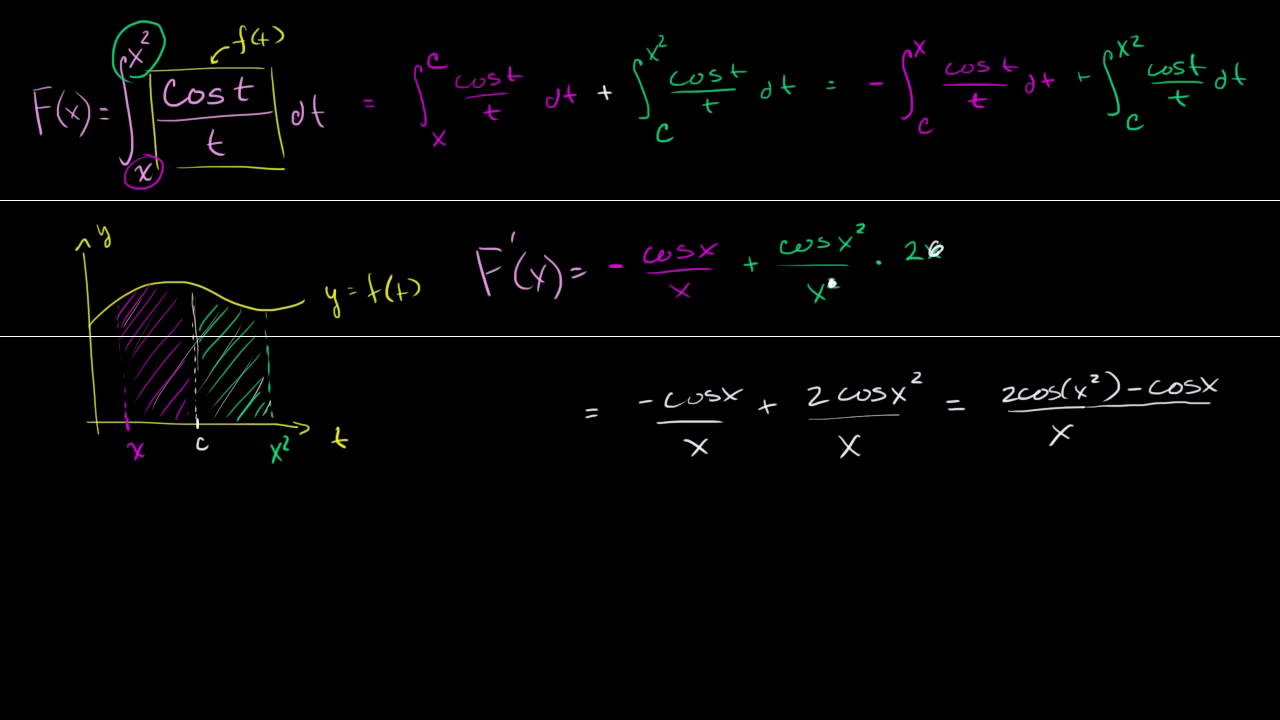 f(t)
F(x) = ∫_x^{x²} cos t / t dt = ∫_x^c cos t / t dt + ∫_c^{x²} cos t / t dt = - ∫_c^x cos t / t dt + ∫_c^{x²} cos t / t dt
y
F'(x) = - cos x / x + cos x² / x² · 2x
y = f(t)
= -cos x / x + 2 cos x² / x = 2cos(x²) - cos x / x
x c x² t